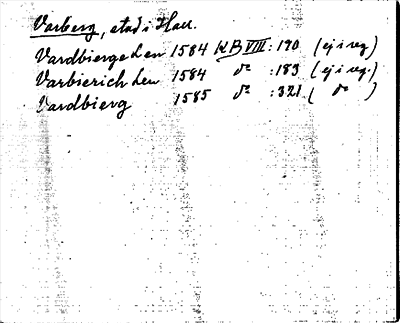 Varberg, stad i Hall.
Vardbiergehen 1584 KB VIII: 190 (ej i reg)
Varbierichhen 1584 do : 183 (ej i reg.)
Vardbierg 1585 do : 321 ( do )